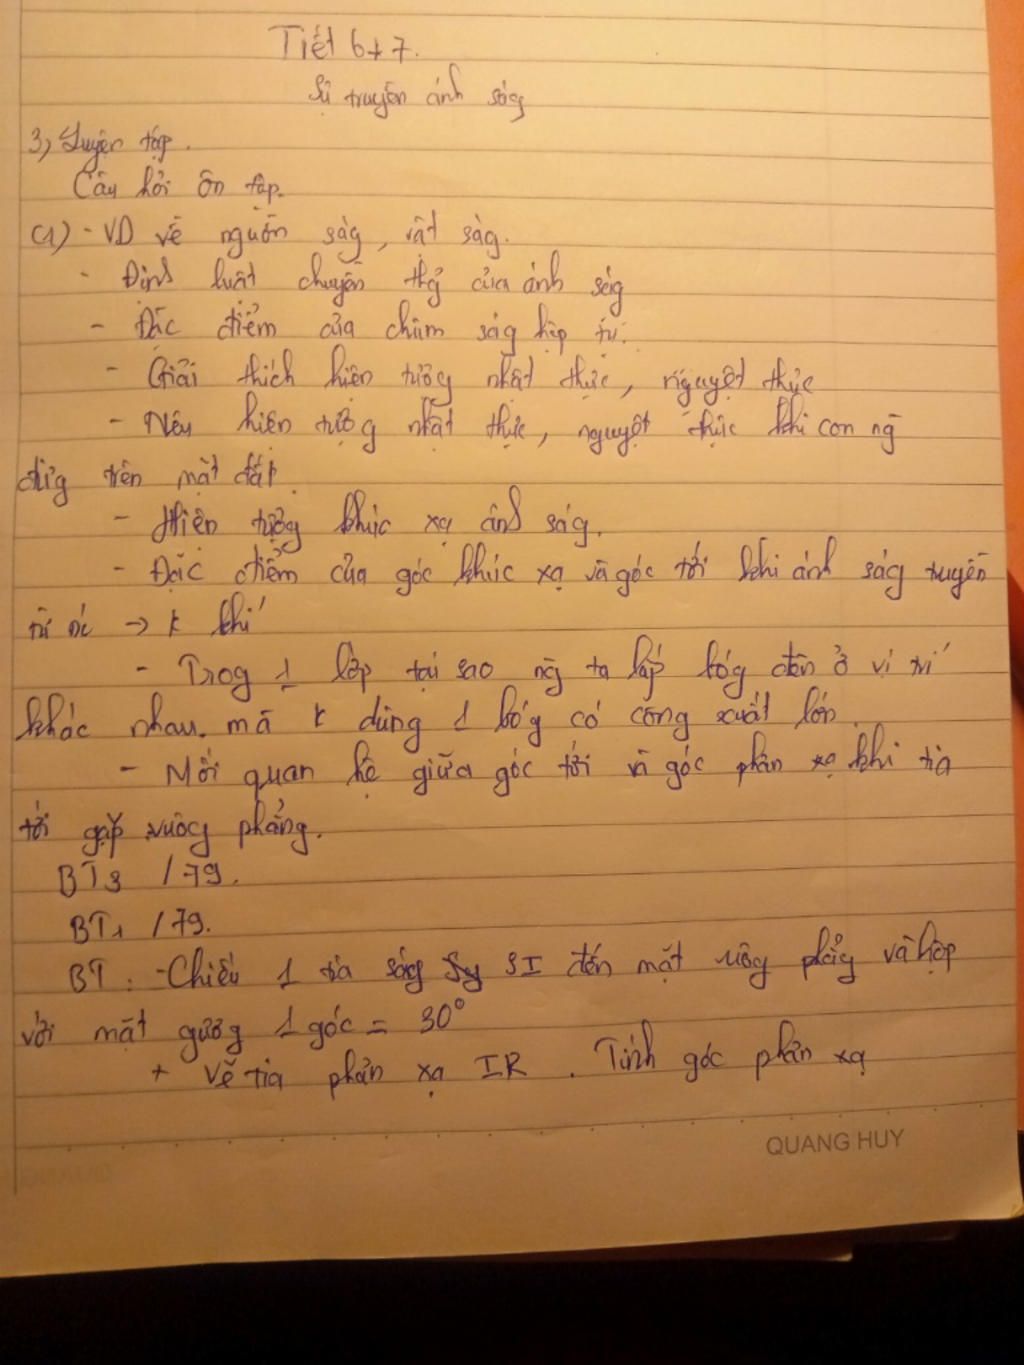 Tiết 6+7.
Sự truyền ánh sáng
3, Luyện tập.
Câu hỏi ôn tập.
C1) - VD về nguồn ság, vật ság.
- Định luật chuyền thg của ánh ság
- Đặc điểm của chùm ság hội tụ.
- Giải thích hiện tượg nhật thực, nguyệt thực
- Nêu hiện tượg nhật thực, nguyệt thực khi con ng
đứg trên mặt đất.
- Hiện tượg khúc xạ ánh ság.
- Đặc điểm của góc khúc xạ và góc tới khi ánh ság truyền
từ nc → k khí
- Trog 1 lớp tại sao ng ta lắp bóg đèn ở vị trí
khác nhau. mà k dùng 1 bóg có công xuất lớn.
- Mối quan hệ giữa góc tới và góc phản xạ khi tia
tới gặp gươg phẳng.
BT3 /79.
BT1 /79.
BT: - Chiếu 1 tia ság SI đến mặt gươg phẳg và hợp
với mặt gươg 1 góc = 30°
+ Vẽ tia phản xạ IR. Tính góc phản xạ
QUANG HUY